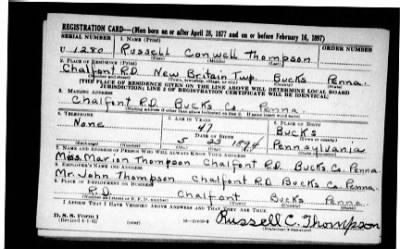 REGISTRATION CARD—(Men born on or after April 28, 1877 and on or before February 16, 1897)
SERIAL NUMBER 1. NAME (Print) ORDER NUMBER
U 1280 Russell Conwell Thompson
2. PLACE OF RESIDENCE (Print)
Chalfont R.D. New Britain Twp. Bucks Penna.
(THE PLACE OF RESIDENCE GIVEN ON THE LINE ABOVE WILL DETERMINE LOCAL BOARD
JURISDICTION; LINE 2 OF REGISTRATION CERTIFICATE WILL BE IDENTICAL)
3. MAILING ADDRESS
Chalfont R.D. Bucks Co. Penna.
4. TELEPHONE 5. AGE IN YEARS 6. PLACE OF BIRTH
None 47 Bucks
DATE OF BIRTH
5 23 1894 Pennsylvania
7. NAME AND ADDRESS OF PERSON WHO WILL ALWAYS KNOW YOUR ADDRESS
Miss Marion Thompson Chalfont R.D. Bucks Co. Penna
8. EMPLOYER'S NAME AND ADDRESS
Mr. John Thompson Chalfont R.D. Bucks Co. Penna.
9. PLACE OF EMPLOYMENT OR BUSINESS
R.D. Chalfont Bucks Penna.
I AFFIRM THAT I HAVE VERIFIED ABOVE ANSWERS AND THAT THEY ARE TRUE.
D. S. S. Form 1
Russell C. Thompson